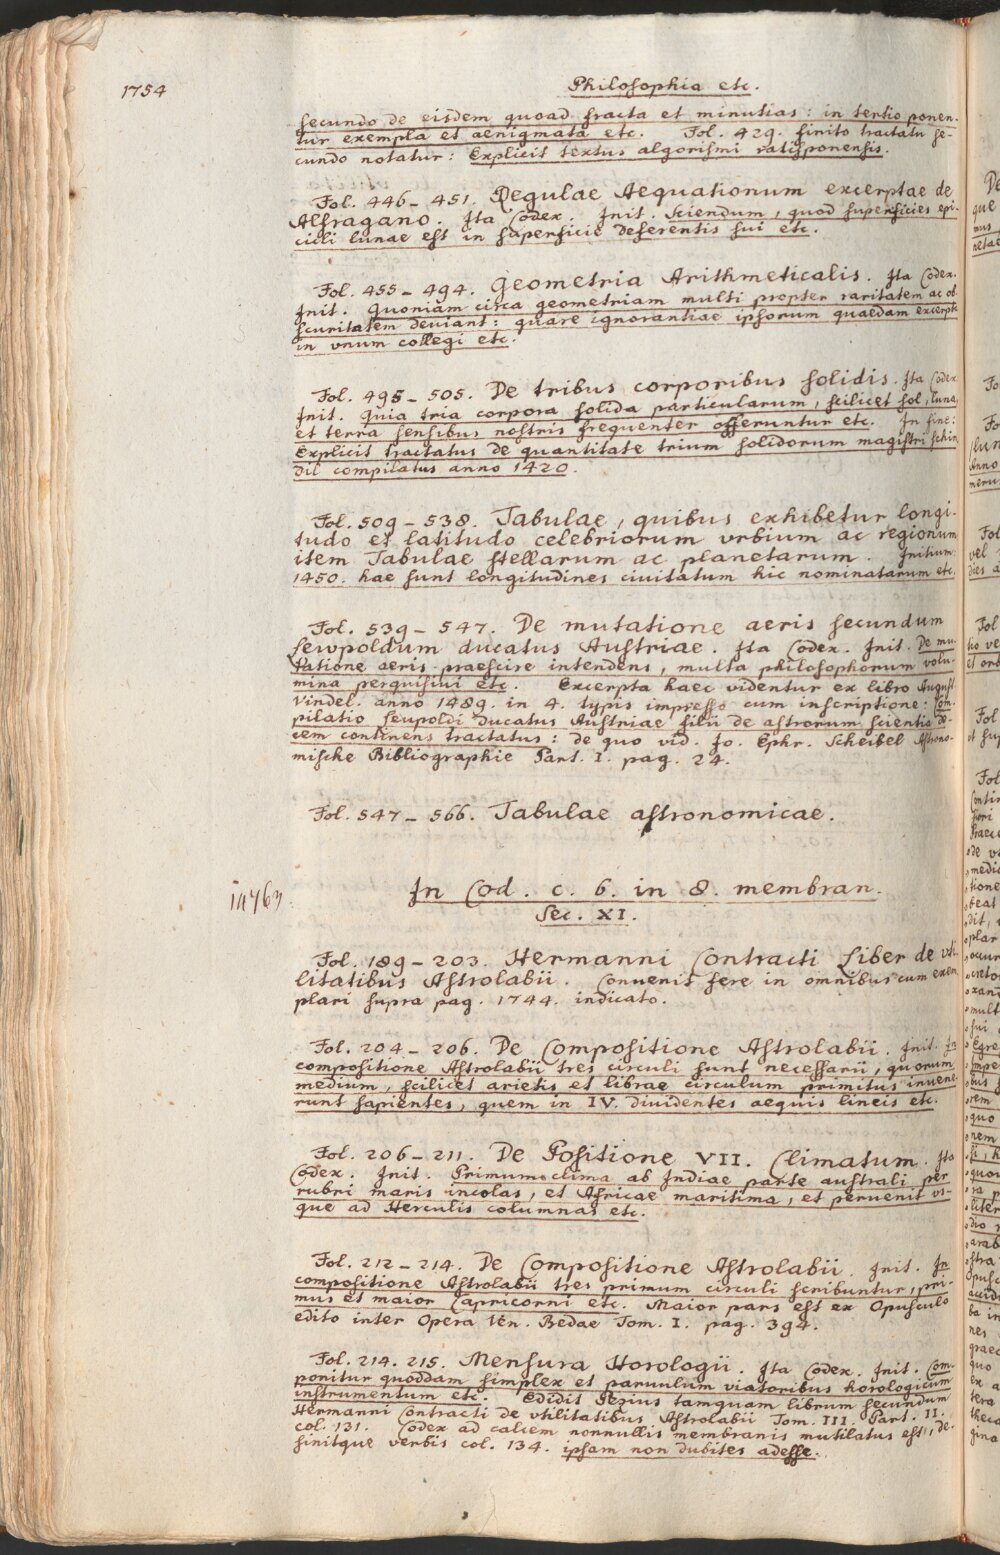 1754
Philosophia etc.
secundo de eisdem quoad fracta et minutias: in tertio ponen-
tur exempla et aenigmata etc. Fol. 429. finito tractatu se-
cundo notatur: Explicit textus algorismi ratisponensis.
Fol. 446 - 451. Regulae Aequationum excerptae de
Alfragano. Ita Codex. Init. Sciendum, quod superficies epi-
cicli lunae est in superficie deferentis sui etc.
Fol. 455 - 494. Geometria Arithmeticalis. Ita Codex.
Init. Quoniam circa geometriam multi propter raritatem ac ob
scuritatem deuiant: quare ignorantiae ipsorum quaedam excerpta
in vnum collegi etc.
Fol. 495 - 505. De tribus corporibus solidis. Ita Codex
Init. Quia tria corpora solida particularum, scilicet sol, luna,
et terra sensibus nostris frequenter offeruntur etc. In fine:
Explicit tractatus de quantitate trium solidorum magistri schin
dil compilatus anno 1420.
Fol. 509 - 538. Tabulae, quibus exhibetur longi-
tudo et latitudo celebriorum vrbium ac regionum
item Tabulae stellarum ac planetarum. Initium:
1450. hae sunt longitudines ciuitatum hic nominatarum etc.
Fol. 539 - 547. De mutatione aeris secundum
Lewpoldum ducatus Austriae. Ita Codex. Init. De mu-
tatione aeris praescire intendens, multa philosophorum volu-
mina perquisiui etc. Excerpta haec videntur ex libro August.
Vindel. anno 1489. in 4. typis impresso cum inscriptione: Com-
pilatio Leupoldi Ducatus Austriae filii de astrorum scientia de-
cem continens tractatus: de quo vid. Jo. Ephr. Scheibel Astrono-
mische Bibliographie Part. I. pag. 24.
Fol. 547 - 566. Tabulae astronomicae.
In Cod. c. 6. in 8. membran.
Sec. XI.
Fol. 189 - 203. Hermanni Contracti Liber de vti-
litatibus Astrolabii. Conuenit fere in omnibus cum exem
plari supra pag. 1744. indicato.
Fol. 204 - 206. De Compositione Astrolabii. Init. In
compositione Astrolabii tres circuli sunt necessarii, quorum
medium, scilicet arietis et librae circulum primitus inuene-
runt sapientes, quem in IV. diuidentes aequis lineis etc.
Fol. 206 - 211. De Positione VII. Climatum. Ita
Codex. Init. Primum clima ab Indiae parte australi per
rubri maris incolas, et Africae maritima, et peruenit vs-
que ad Herculis columnas etc.
Fol. 212 - 214. De Compositione Astrolabii. Init. In
compositione Astrolabii tres primum circuli scribuntur, pri-
mus et maior Capricorni etc. Maior pars est ex Opusculo
edito inter Opera Ven. Bedae Tom. I. pag. 394.
Fol. 214. 215. Mensura Horologii. Ita Codex. Init. Com-
ponitur quoddam simplex et paruulum viatoribus horologicum
instrumentum etc. Edidit Pezius tamquam librum secundum
Hermanni Contracti de vtilitatibus Astrolabii Tom. III. Part. II.
col. 131. Codex ad calcem nonnullis membranis mutilatus est, de-
sinitque verbis col. 134. ipsam non dubites adesse.